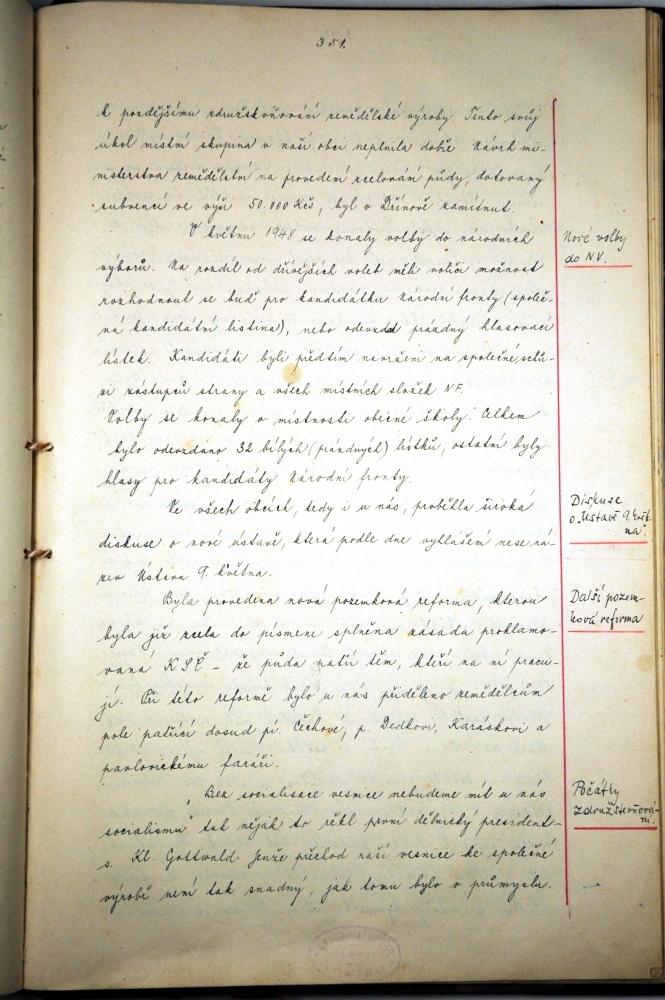 351.
k pozdějšímu združstevňování zemědělské výroby. Tento svůj
úkol místní skupina v naší obci neplnila dobře. Návrh mi-
nisterstva zemědělství na provedení scelování půdy, dotovaný
subvencí ve výši 50.000 Kčs, byl v Dřínově zamítnut.
V květnu 1948 se konaly volby do národních
výborů. Na rozdíl od dřívějších voleb měli voliči možnost
rozhodnout se buď pro kandidátku Národní fronty (společ-
ná kandidátní listina), nebo odevzdad prázdný hlasovací
lístek. Kandidáti byli předtím navrženi na společné schů-
zi zástupců strany a všech místních složek NF.
Volby se konaly v místnosti obecné školy. Celkem
bylo odevzdáno 32 bílých (prázdných) lístků, ostatní byly
hlasy pro kandidáty Národní fronty.
Ve všech obcích, tedy i u nás, proběhla široká
diskuse o nové ústavě, která podle dne vyhlášení nese ná-
zev Ústava 9. května.
Byla provedena nová pozemková reforma, kterou
byla již zcela do písmene splněna zásada proklamo-
vaná KSČ – že půda patří těm, kteří na ní pracu-
jí. Při této reformě bylo u nás přiděleno zemědělcům
pole patřící dosud pí. Čechové, p. Dedkovi, Karáskovi a
pavlovickému faráři.
„Bez socialisace vesnice nebudeme mít u nás
socialismu" tak nějak to řekl první dělnický president-
s. Kl. Gottwald. Jenže přechod naší vesnice ke společné
výrobě není tak snadný, jak tomu bylo v průmyslu.
Nové volby
do NV.
Diskuse
o „Ústavě 9. květ-
na".
Další pozem-
ková reforma
Počátky
združstevňová-
ní.